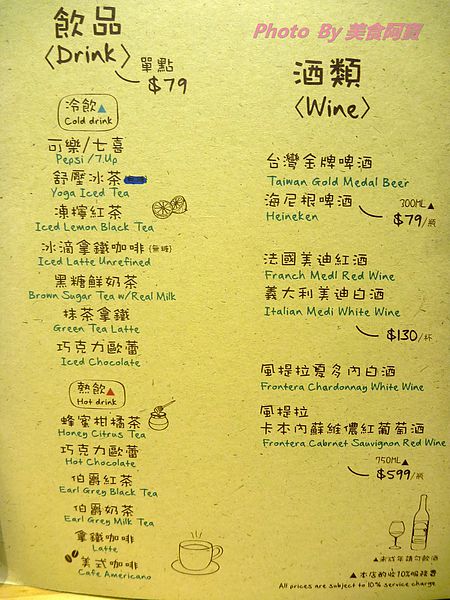 Photo By 美食阿買
飲品
〈Drink〉
單點
$79
冷飲▲
Cold drink
可樂/七喜
Pepsi /7.Up
舒壓冰茶
Yoga Iced Tea
凍檸紅茶
Iced Lemon Black Tea
冰滴拿鐵咖啡(無糖)
Iced Latte Unrefined
黑糖鮮奶茶
Brown Sugar Tea w/Real Milk
抹茶拿鐵
Green Tea Latte
巧克力歐蕾
Iced Chocolate
熱飲▲
Hot drink
蜂蜜柑橘茶
Honey Citrus Tea
巧克力歐蕾
Hot Chocolate
伯爵紅茶
Earl Grey Black Tea
伯爵奶茶
Earl Grey Milk Tea
拿鐵咖啡
Latte
美式咖啡
Cafe Americano
酒類
〈Wine〉
台灣金牌啤酒
Taiwan Gold Medal Beer
海尼根啤酒
Heineken
300ML▲
$79/瓶
法國美迪紅酒
Franch Medl Red Wine
義大利美迪白酒
Italian Medi White Wine
$130/杯
風提拉夏多內白酒
Frontera Chardonnay White Wine
風提拉
卡本內蘇維儂紅葡萄酒
Frontera Cabrnet Sauvignon Red Wine
750ML▲
$599/瓶
▲未成年請勿飲酒
▲本店酌收10%服務費
All prices are subject to 10% service charge